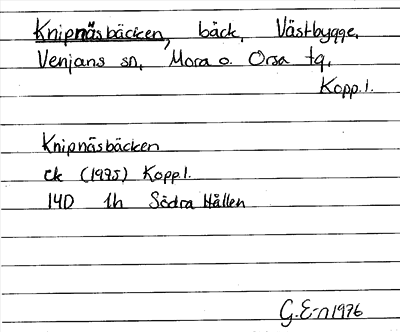 Knipnäsbäcken, bäck, Västbygge,
Venjans sn, Mora o. Orsa tg,
Kopp.l.
Knipnäsbäcken
ek (1975) Kopp.l.
14D 1h Södra Hållen
G.E-n 1976